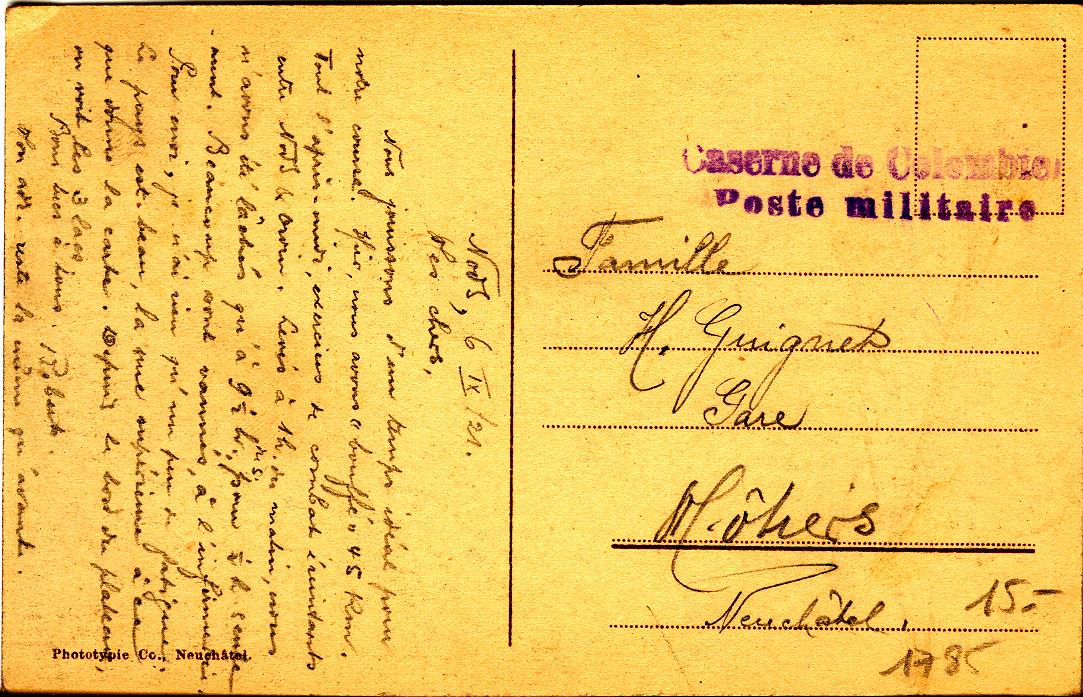 Nods, 6 IX/21.
Mes chers,
Nous jouissons d'un temps idéal pour
notre course. Hier, nous avons "bouffé" 45 km.
Tout l'après-midi, exercices de combat éreintants
entre Nods & Orvin. Levés à 1h. du matin, nous
n'avons été lâchés qu'à 9½ h. du s.,
Beaucoup sont vannés, à l'infirmerie.
Pour moi, je n'ai rien qu'un peu de fatigue.
Le pays est beau, la vue supérieure à ce
que donne la carte. Depuis le bord du plateau,
on voit les 3 lacs
Bons becs à tous. Robert.
Mon adr. reste la même qu'avant.
Phototypie Co., Neuchâtel.
Caserne de Colombier
Poste militaire
Famille
H. Guignet
Gare
Môtiers
Neuchâtel.
15.-
1785